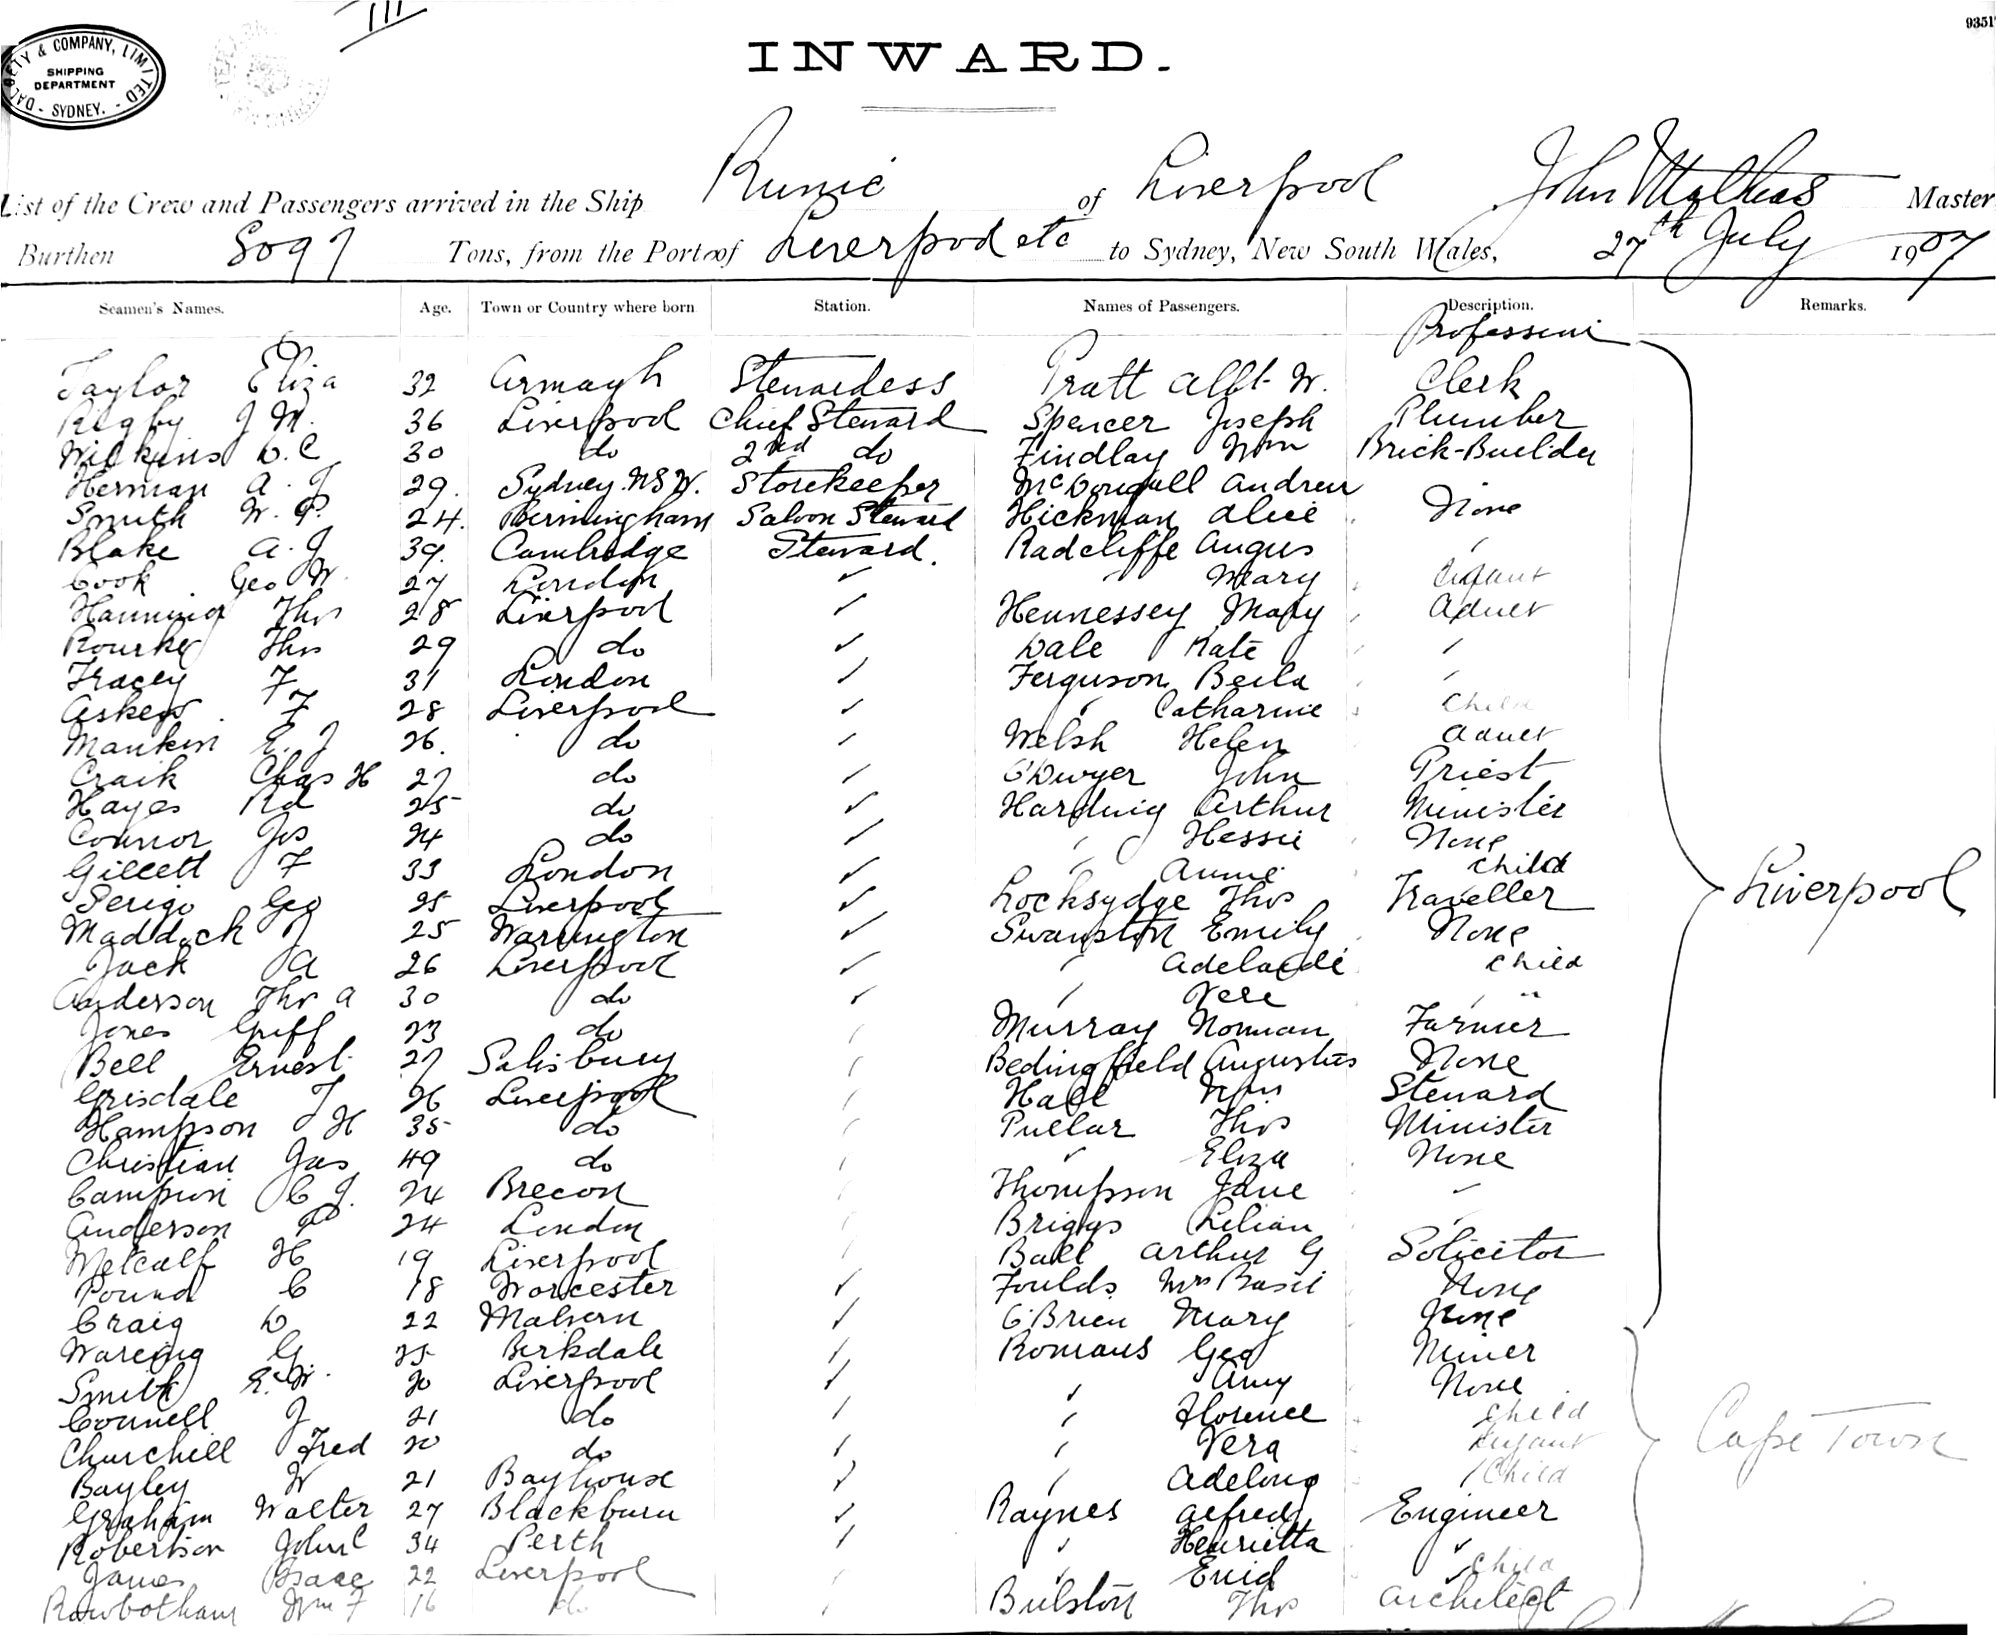 III
93517
DALGETY & COMPANY, LIMITED
SHIPPING DEPARTMENT
SYDNEY.
INWARD.
List of the Crew and Passengers arrived in the Ship Runic of Liverpool John Mathias Master
Burthen 8097 Tons, from the Port of Liverpool etc to Sydney, New South Wales, 27th July 1907
Seamen's Names. Age. Town or Country where born Station. Names of Passengers. Description. Remarks.
Profession
Taylor Eliza 32 Armagh Stewardess Pratt Albt. W. Clerk
Rigby J W. 36 Liverpool Chief Steward Spencer Joseph Plumber
Wilkins D. C 30 do 2nd do Findlay Wm Brick-Builder
Herman A. J 29. Sydney. NSW. Storekeeper McDougall Andrew
Smith W. P. 24. Birmingham Saloon Steward Hickman Alice None
Blake A. J 39. Cambridge Steward. Radcliffe Angus "
Cook Geo W. 27 London " " Mary Infant
Hanning Thos 28 Liverpool " Hennessey Mary Adult
Rourke Thos 29 do " Dale Kate "
Tracey F 31 London " Ferguson Bella "
Askew F 28 Liverpool " " Catharine Child
Mankin E. J 26. do " Welsh Helen Adult
Craik Chas H 27 do " O'Dwyer John Priest
Hayes Rd 25 do " Harding Arthur Minister
Connor Jos 24 do " " Hessie None
Gillett F 33 London " " Annie Child
Perigo Geo 25 Liverpool " Locksydge Thos Traveller Liverpool
Maddock J 25 Warrington " Swanston Emily None
Jack A 26 Liverpool " " Adelaide Child
Anderson Thos A 30 do " " Vere " "
Jones Griff 23 do " Murray Norman Farmer
Bell Ernest 27 Salisbury " Bedingfield Augustus None
Grisdale J 26 Liverpool " Hall Wm Steward
Hampson H 35 do " Pullar Thos Minister
Christian Jas 49 do " " Eliza None
Campion C J. 24 Brecon " Thompson Jane "
Anderson 24 London " Briggs Lilian "
Metcalf H 19 Liverpool " Ball Arthur G Solicitor
Pound C 18 Worcester " Foulds Mrs Basil None
Craig D 22 Malvern " O'Brien Mary None
Wareing G 25 Birkdale " Romans Geo Miner
Smith E. W. 20 Liverpool " " Amy None
Connell J 21 do " " Florence Child
Churchill Fred 20 do " " Vera Infant Cape Town
Bayley W 21 Bayhouse " " Adelong Child
Graham Walter 27 Blackburn " Raynes Alfred Engineer
Robertson John C 34 Perth " " Henrietta "
James Isaac 22 Liverpool " " Enid " Child
Rowbotham Wm F 16 do " Bulston Thos Architect